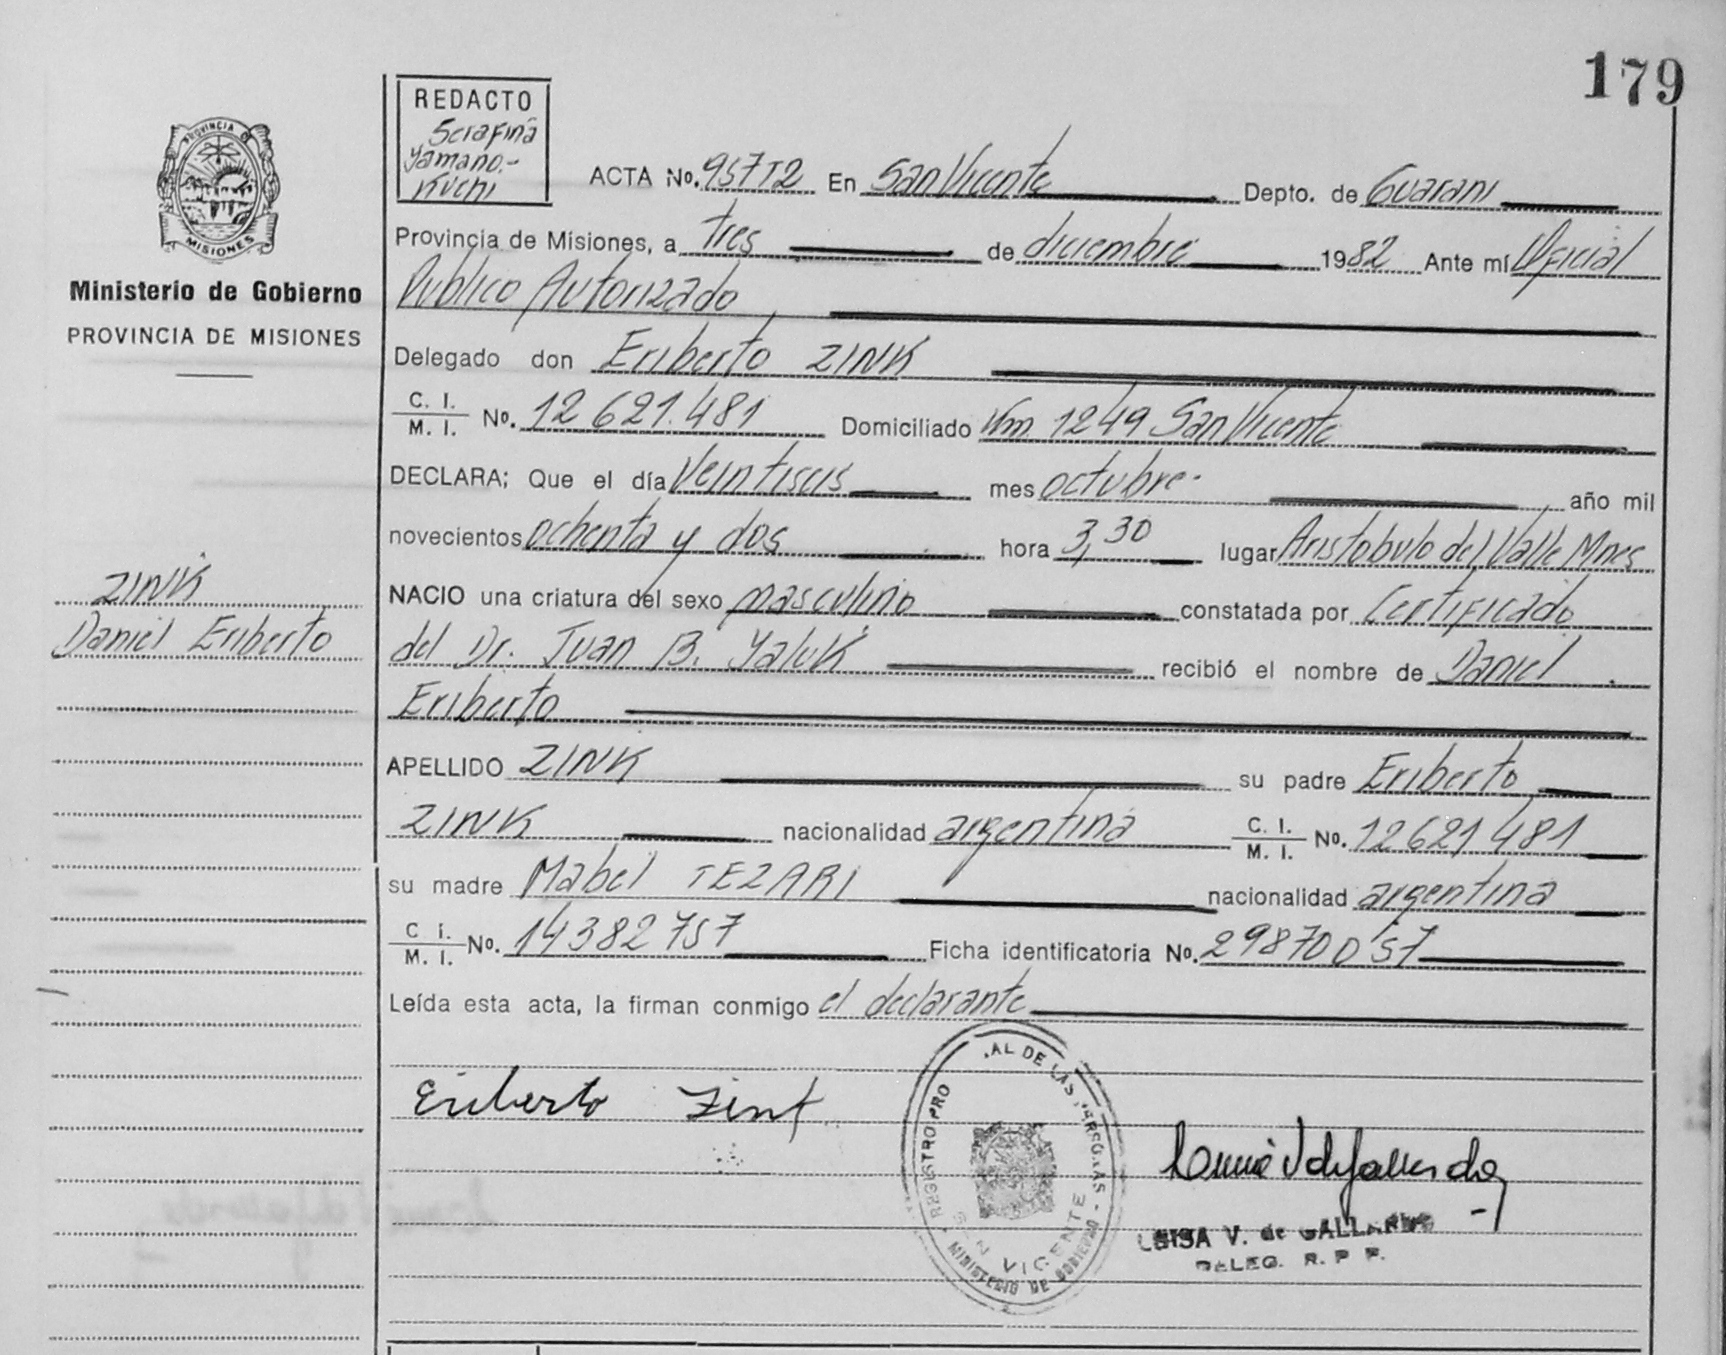 179
REDACTO
Serafina
Yamano-
Kuchi
PROVINCIA DE
MISIONES
Ministerio de Gobierno
PROVINCIA DE MISIONES
ACTA No. 957T2 En San Vicente Depto. de Guarani
Provincia de Misiones, a tres de diciembre 1982 Ante mí Oficial
Publico Autorizado
Delegado don Eriberto ZINK
C. I. / M. I. No. 12 621.481 Domiciliado Km 1249 San Vicente
DECLARA; Que el día Veintiseis mes octubre año mil
novecientos ochenta y dos hora 3,30 lugar Aristobulo del Valle Mnes
NACIO una criatura del sexo masculino constatada por Certificado
del Dr. Juan B. Yaluk recibió el nombre de Daniel
Eriberto
APELLIDO ZINK su padre Eriberto
ZINK nacionalidad argentina C. I. / M. I. No. 12621481
su madre Mabel TEZARI nacionalidad argentina
C. I. / M. I. No. 14382757 Ficha identificatoria No.
Leída esta acta, la firman conmigo el declarante
ZINK
Daniel Eriberto
Eriberto Zink
REGISTRO PRO AL DE LAS PERSONAS
SAN VICENTE
MINISTERIO DE GOBIERNO
LUISA V. de GALLARDO
DELEG. R. P. P.